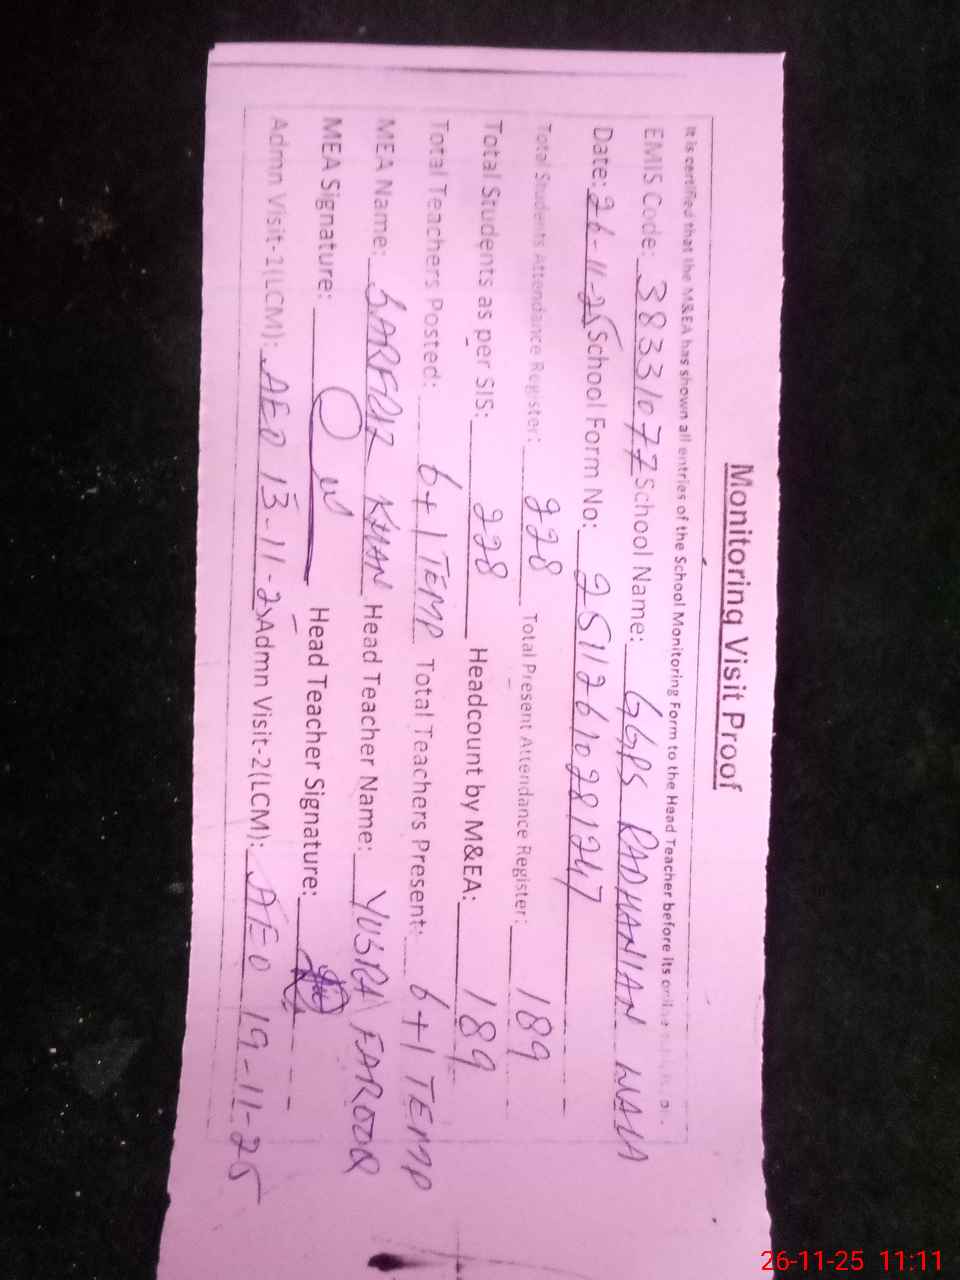 Monitoring Visit Proof
It is certified that the M&EA has shown all entries of the School Monitoring Form to the Head Teacher before its
EMIS Code: 38331077 School Name: GGPS RADHANIAN WALA
Date: 26-11-25 School Form No: 25112610281247
Total Students Attendance Register: 228 Total Present Attendance Register: 189
Total Students as per SIS: 228 Headcount by M&EA: 189
Total Teachers Posted: 6+1 TEMP Total Teachers Present: 6+1 TEMP
MEA Name: SARFRAZ KHAN Head Teacher Name: YUSRA FAROOQ
MEA Signature: Head Teacher Signature:
Admn Visit-1(LCM): AEO 13-11-25 Admn Visit-2(LCM): AEO 19-11-25
26-11-25 11:11